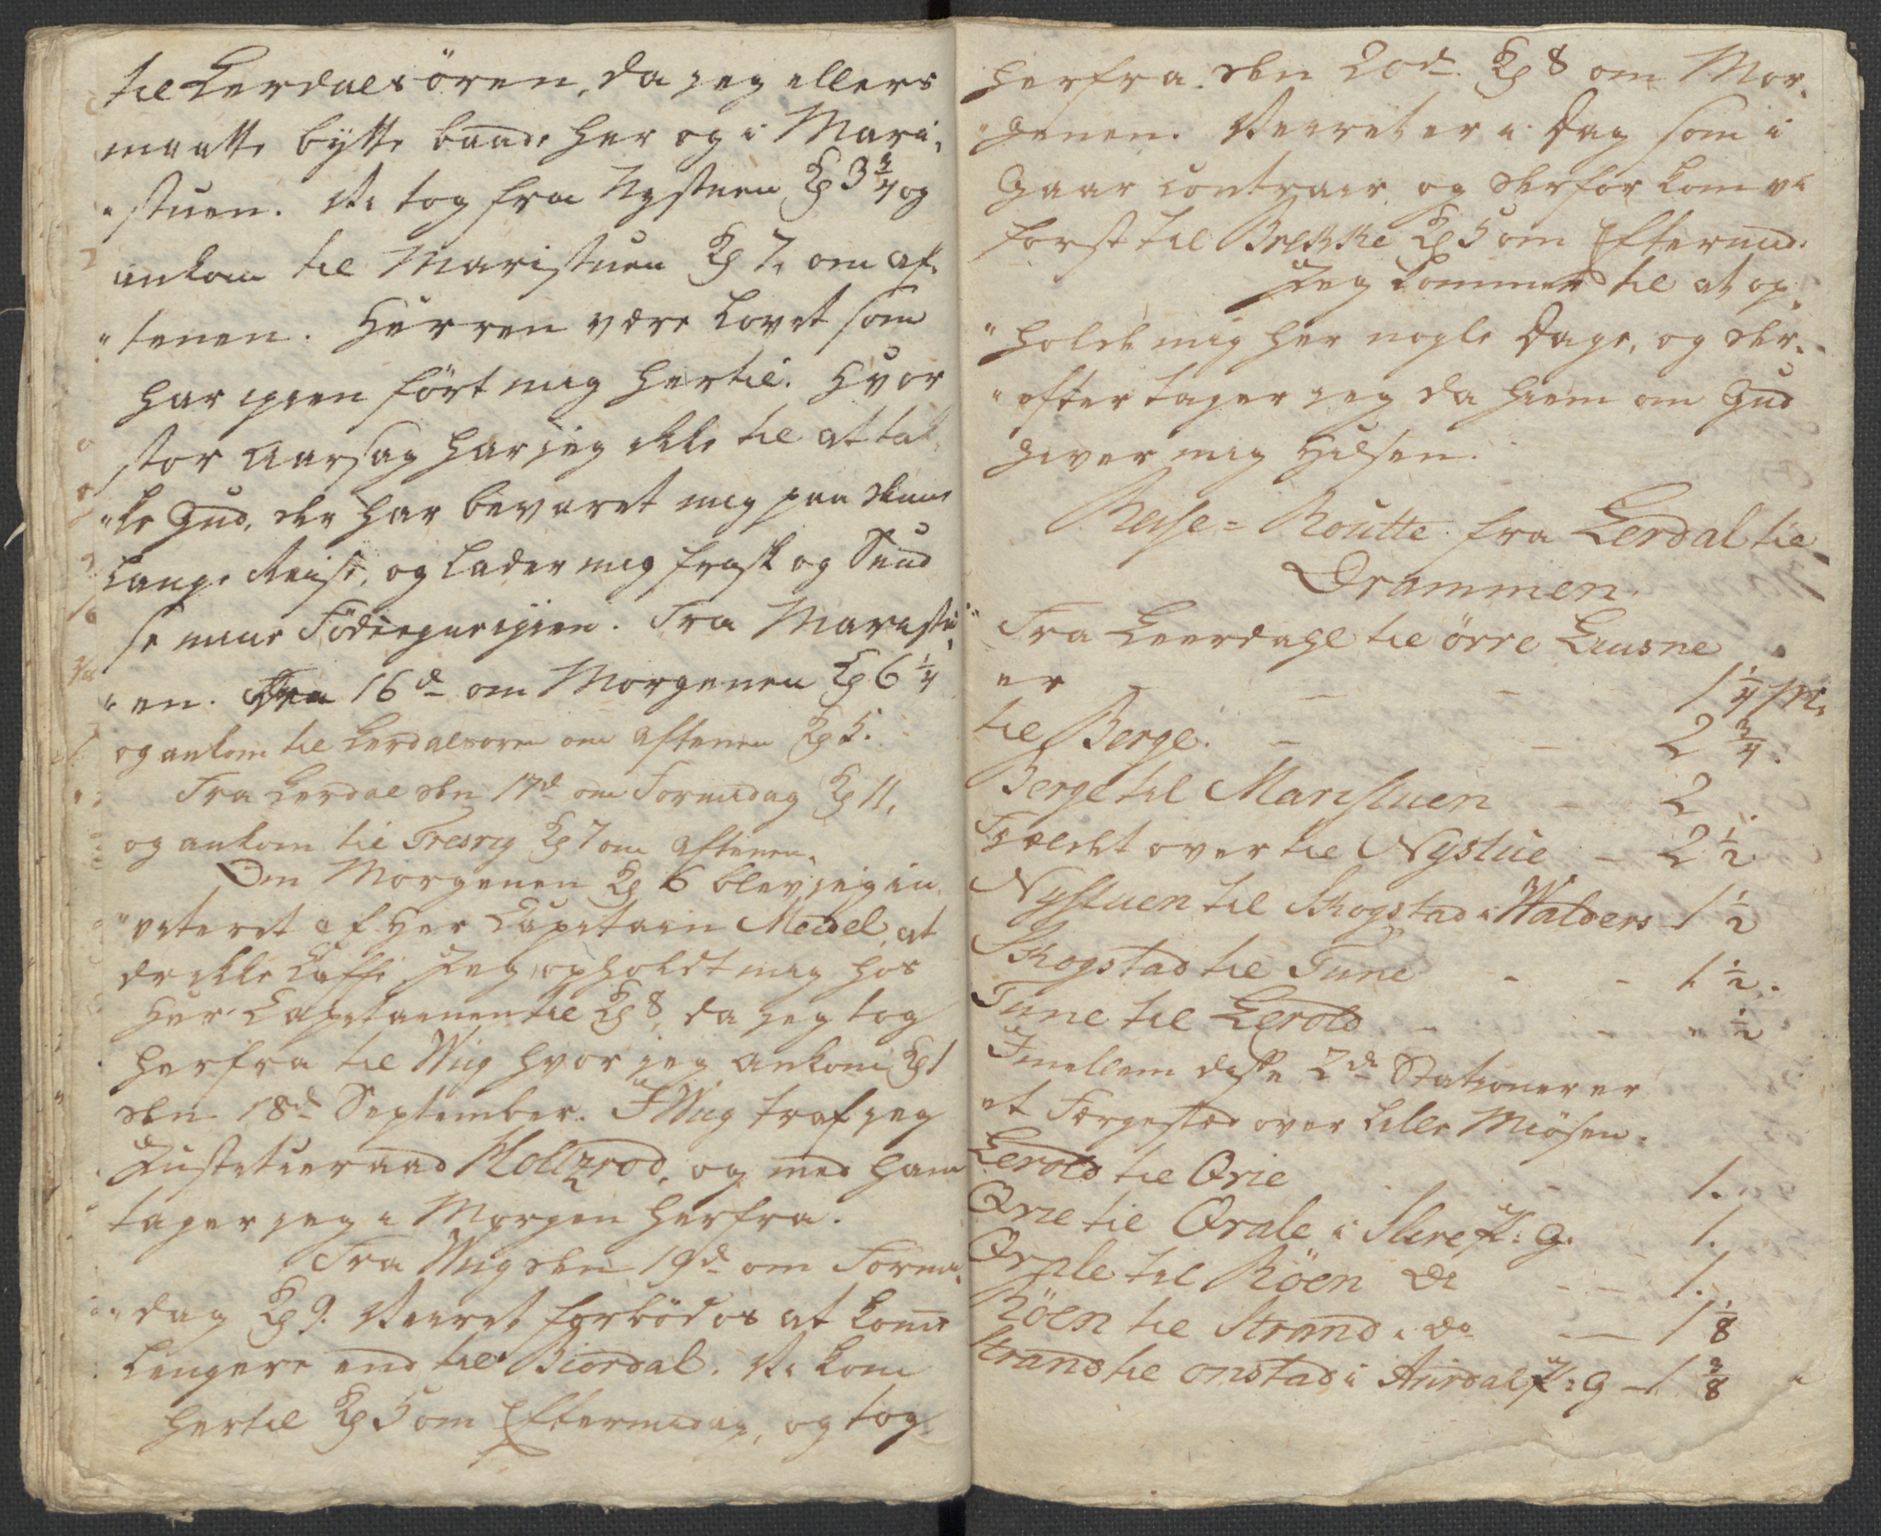 til Lerdalsören, da jeg ellers
maatte bytte baade her og i Mari,
"stuen. Vi tog fra Nystuen Kl 3 3/4 og
ankom til Maristuen Kl 7, om af,
"tenen. Herren være Lovet som
har igien fört mig hertil. Hvor
stor Aarsag har jeg ikke til at tak
"ke Gud, der har bevaret mig paa denne
Lange Reise, og Lader mig frisk og Sund
se min Födeegn igien. Fra Maristu,
"en. 16d om Morgenen Kl 6 1/4
og ankom til Lerdalsören om aftenen Kl 5.
Fra Lerdal den 17d om Formidag Kl 11,
og ankom til Kl 7 om aftenen.
Om Morgenen Kl 6 blev jeg in
"viteret af Her Capitain Meidel, at
drikke Kaffe. Jeg opholdt mig hos
Her Capitainen til Kl 8, da jeg tog
herfra til Wiig hvor jeg ankom Kl 1
den 18d September. I Wiig traf jeg
Justitieraad og med ham
tager jeg i Morgen herfra.
Fra Wiig den 19d om Formi,
"dag Kl 9. Veiret forböd os at komme
Lengere end til Biordal. Vi kom
hertil Kl 5 om Eftermidag, og tog
herfra den 20d Kl 8 om Mor,
"genen. Veiret er i Dag som i
Gaar contrair og derfor kom vi
först til Brekke Kl 5 om Eftermid.
Jeg kommer til at op,
"holde mig her nogle Dage, og der,
"efter tager jeg da hiem om Gud
giver mig Hilsen.
Reise-Routte fra Lerdal til
Drammen.
Fra Leerdahl til övre Liusne
er - - 1 1/4 M.
til Berge. - - 2 3/4.
Berge til Maristuen - 2
Fieldet over til Nystue - 2 1/2
Nystuen til Skogstad i Walders - 1 1/2
Skogstad til Tune - - 1 1/2.
Tune til Lerold - - " 1/2
Imellem disse 2de Stationer er
et Færgested over Lille Miösen.
Lerold til Qvie - 1.
Qvie til Qvale i Slire P: G. - 1.
Qvale til Röen Do - - 1.
Röen til Strand i do - 1 1/8
Strand til Onstad i Aurdal P: G - 1 3/8